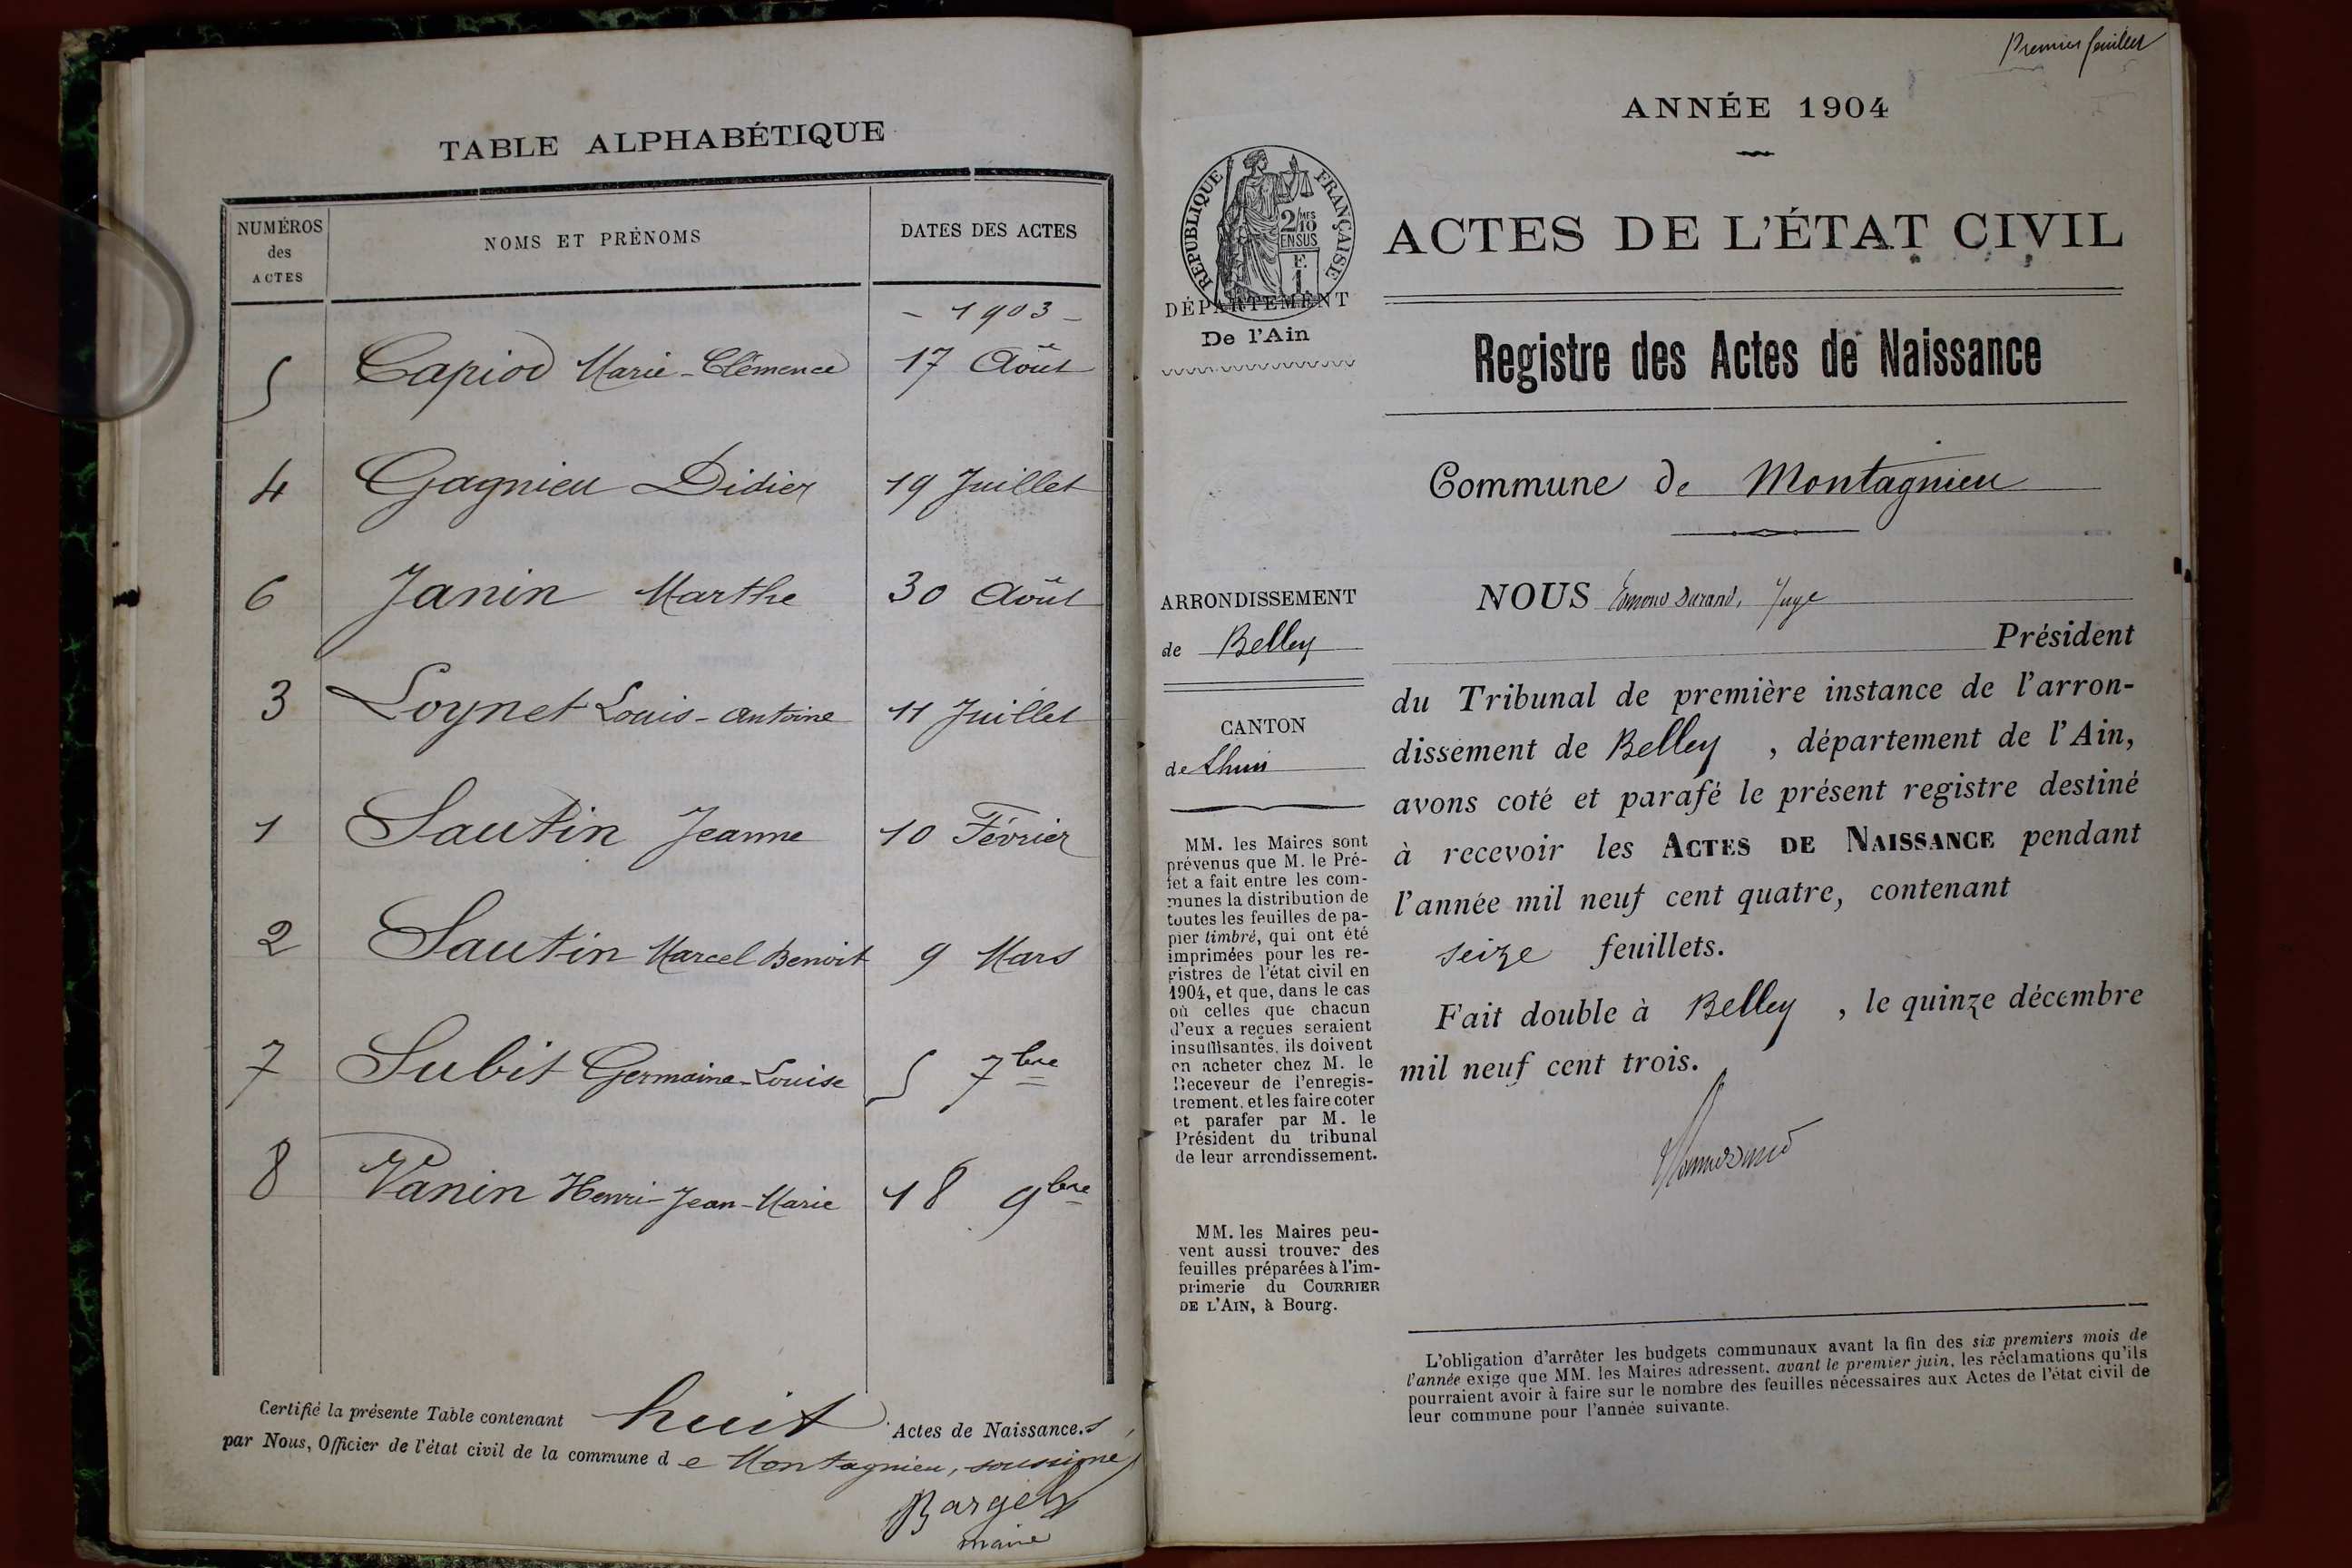 TABLE ALPHABÉTIQUE
NUMÉROS
des
ACTES
NOMS ET PRÉNOMS
DATES DES ACTES
- 1903 -
5 Capiod Marie-Clémence 17 Août
4 Gagnieu Didier 19 Juillet
6 Janin Marthe 30 Août
3 Loynet Louis-Antoine 11 Juillet
1 Sautin Jeanne 10 Février
2 Sautin Marcel Benoit 9 Mars
7 Subit Germaine-Louise 5 7bre
8 Vanin Henri-Jean-Marie 18 9bre
Certifié la présente Table contenant huit Actes de Naissance.s
par Nous, Officier de l'état civil de la commune de Montagnieu, soussigné
maire
Premier feuillet
ANNÉE 1904
RÉPUBLIQUE FRANÇAISE
2/10MES
EN SUS
F.
1
DÉPARTEMENT
De l'Ain
ACTES DE L'ÉTAT CIVIL
Registre des Actes de Naissance
Commune de Montagnieu
ARRONDISSEMENT
de Belley
CANTON
de Lhuis
MM. les Maires sont
prévenus que M. le Pré-
fet a fait entre les com-
munes la distribution de
toutes les feuilles de pa-
pier timbré, qui ont été
imprimées pour les re-
gistres de l'état civil en
1904, et que, dans le cas
où celles que chacun
d'eux a reçues seraient
insuffisantes, ils doivent
en acheter chez M. le
Receveur de l'enregis-
trement, et les faire coter
et parafer par M. le
Président du tribunal
de leur arrondissement.
MM. les Maires peu-
vent aussi trouver des
feuilles préparées à l'im-
primerie du COURRIER
DE L'AIN, à Bourg.
NOUS Edmond Durand, Juge
Président
du Tribunal de première instance de l'arron-
dissement de Belley, département de l'Ain,
avons coté et parafé le présent registre destiné
à recevoir les ACTES DE NAISSANCE pendant
l'année mil neuf cent quatre, contenant
seize feuillets.
Fait double à Belley, le quinze décembre
mil neuf cent trois.
L'obligation d'arrêter les budgets communaux avant la fin des six premiers mois de
l'année exige que MM. les Maires adressent, avant le premier juin, les réclamations qu'ils
pourraient avoir à faire sur le nombre des feuilles nécessaires aux Actes de l'état civil de
leur commune pour l'année suivante.